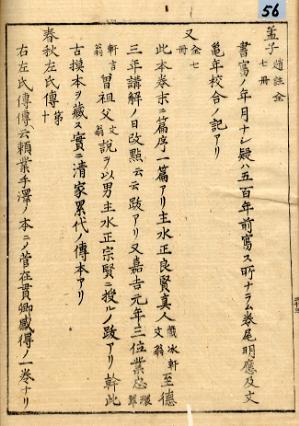 56
孟子 趙註全七冊
書寫ノ年月ナシ疑ハ五百年前寫ス所ナラム卷尾明應及文
龜年校合ノ記アリ
又 全七冊
此本卷末ニ篇序一篇アリ主水正良賢真人 至德
三年講解ノ日改點云云跋アリ又嘉吉元年三位業忠
軒言翁曾祖父 文翁 說ヲ以男主水正宗賢ニ授ルノ跋アリ幹此
古摸本ヲ藏ス實ニ清家累代ノ傳本アリ
春秋左氏傳 第十
右左氏傳傳云賴業手澤ノ本ニノ菅在貫卿臧傳ノ一卷ナリ